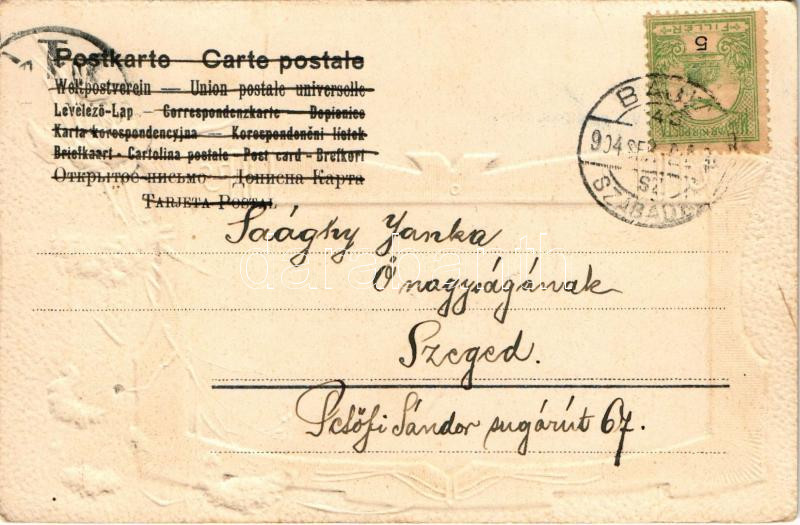 Postkarte — Carte postale
Weltpostverein — Union postale universelle
Levelező-Lap — Correspondenzkarte — Dopisnice
Karta korespondencyjna — Korespondenční lístek
Briefkaart - Cartolina postale - Post card - Brefkort
Открытое письмо — Дописна Карта
TARJETA POSTAL
5
FILLÉR
904 SE
SZABAD
Saághy Janka
Őnagyságának
Szeged.
Petőfi Sándor sugárút 67.
darabanth